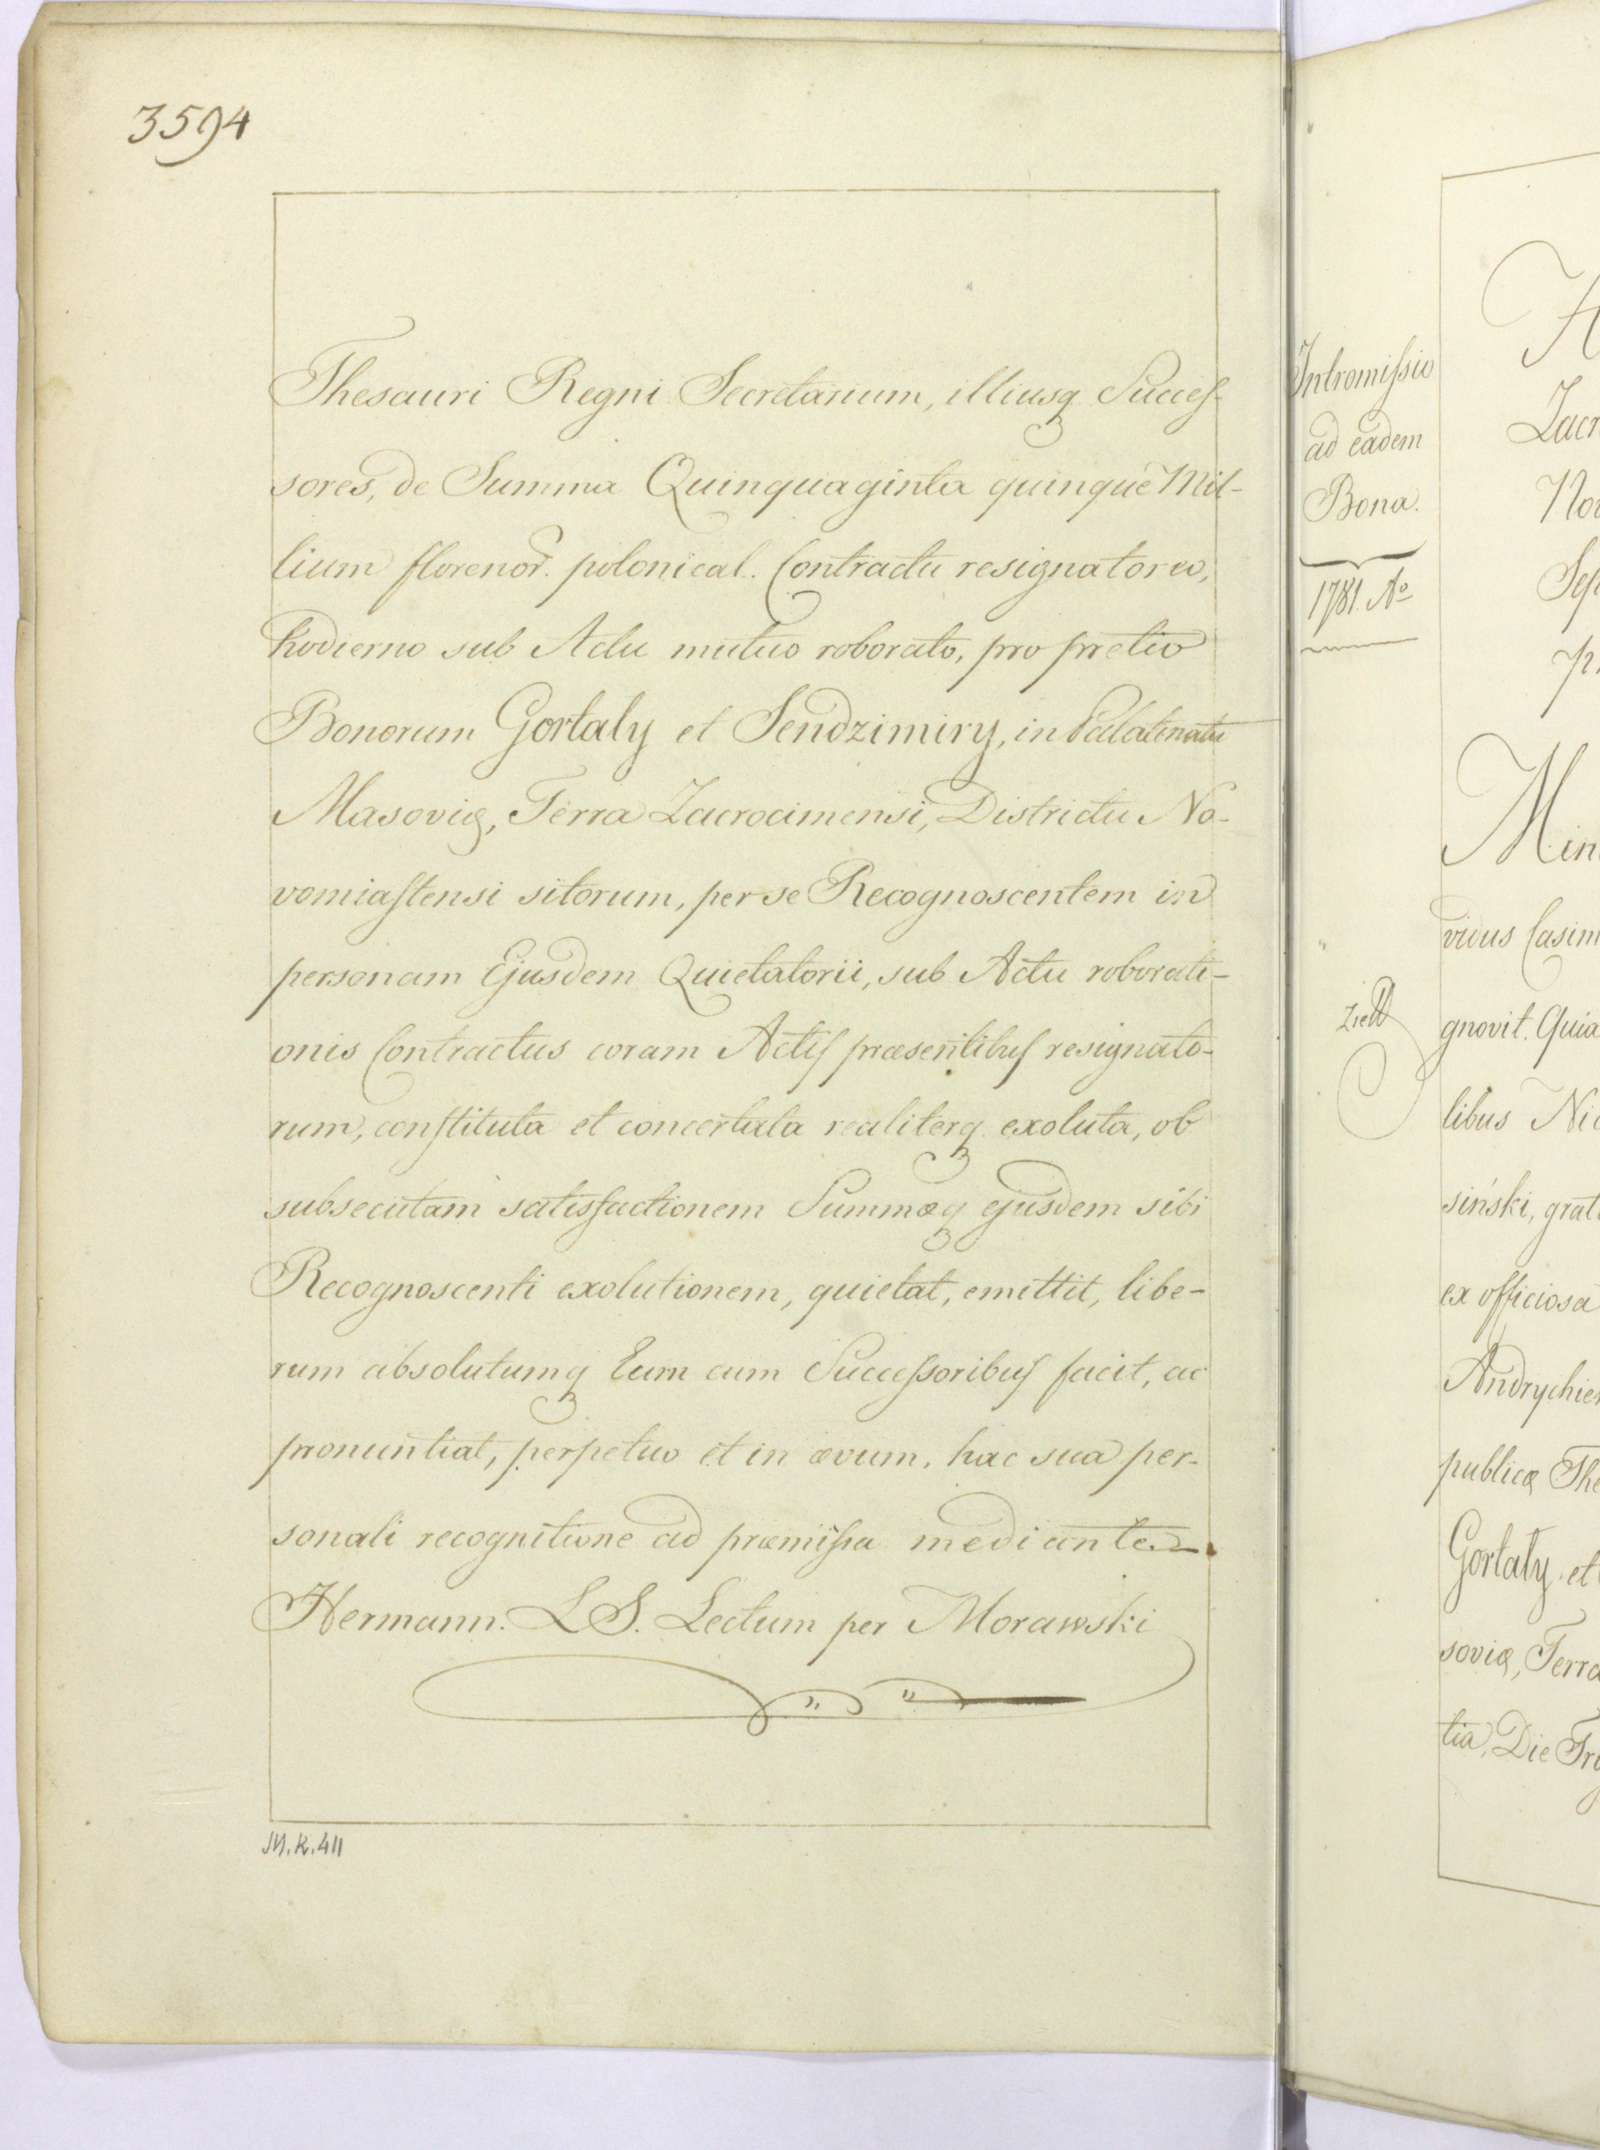 3594
Thesauri Regni Secretarium, illiusq Succes-
sores, de Summa Quinquaginta quinque Mil-
lium florenor. polonical. Contractu resignatorio,
hodierno sub Actu mutuo roborato, pro pretio
Bonorum Gortaly et Sendzimiry, in Palatinatu
Masoviæ, Terra Zacrocimensi, Districtu No-
vomiastensi sitorum, per se Recognoscentem in
personam Ejusdem Quietatorii, sub Actu roborati-
onis Contractus coram Actis præsentibus resignato-
rum, constituta et concertata realiterq exoluta, ob
subsecutam satisfactionem Summæq ejusdem sibi
Recognoscenti exolutionem, quietat, emittit, libe-
rum absolutumq Eum cum Successoribus facit, ac
pronuntiat, perpetuo et in ævum, hac sua per-
sonali recognitione ad præmissa mediante.
Hermann. L S. Lectum per Morawski
M.K.411
Intromissio
ad eadem
Bona.
1781. Ao
Zacr
Nov
Sep
Min
vidus Casim
gnovit. Quia
libus Nic
siński, grat
ex officiosa
Andrychie
publicæ The
Gortaty et
soviæ, Terra
tia, Die Tri